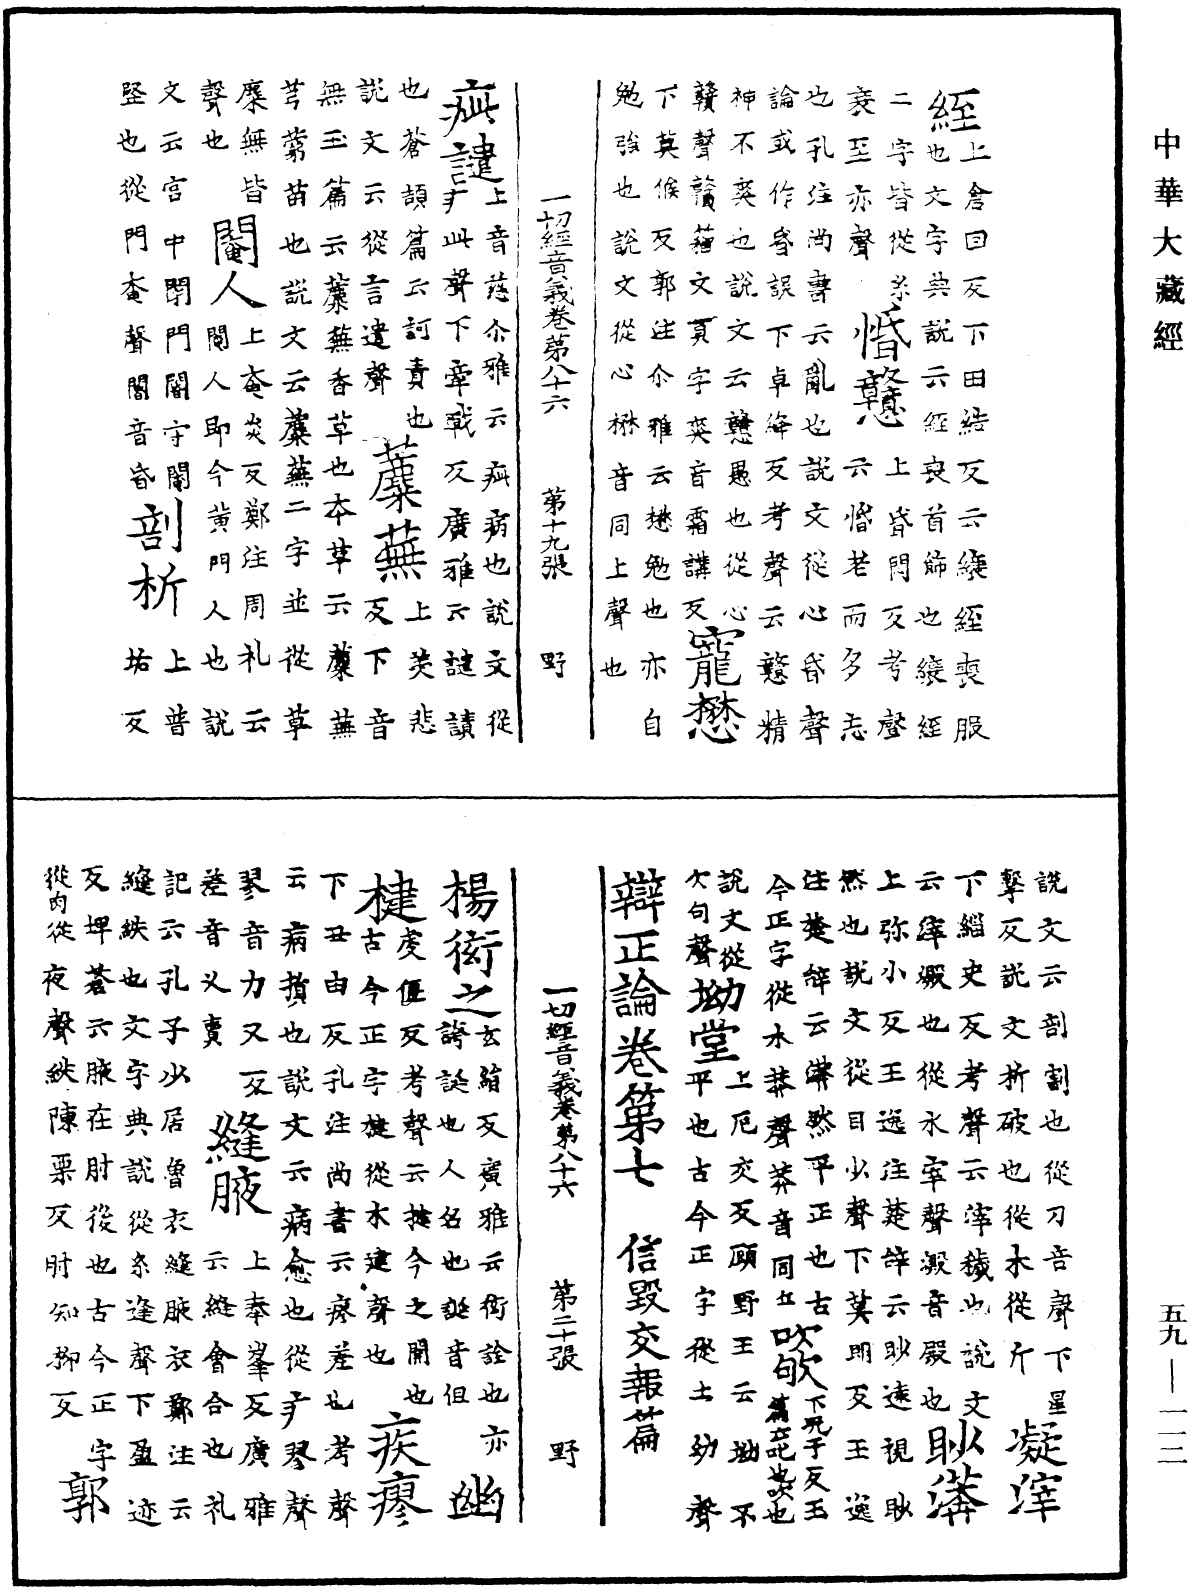 中華大藏經
絰上倉回反下田結反云縗絰喪服
也文字典說云絰喪首飾也縗絰
二字皆從糸惛戇上昏悶反考聲
衰至亦聲云惛老而多忘
也孔注尚書云亂也說文從心昏聲
論或作昏誤下卓絳反考聲云戇精
神不爽也說文云戇愚也從心
贛聲贛籀文貢字爽音霜講反寵懋
下莫候反郭注尒雅云懋勉也亦自
勉強也說文從心楙音同上聲也
一切經音義卷第八十六 第十九張 野
疵譴上音慈尒雅云疵病也說文從
疒此聲下牽戰反廣雅云譴讀
也蒼頡篇云訶責也蘪蕪上美悲
說文云從言遣聲反下音
無玉篇云蘪蕪香草也本草云蘪蕪
芎藭苗也說文云蘪蕪二字並從草
麋無皆閹人上奄炎反鄭注周礼云
聲也閹人即今黃門人也說
文云宮中閉門閽守閽剖析上普
竪也從門奄聲閽音昏垢反
說文云剖割也從刀咅聲下星凝滓
擊反說文析破也從木從斤
下緇史反考聲云滓穢也說文
云滓澱也從水宰聲澱音殿也眇漭
上弥小反王逸注楚辝云眇遠視眇
然也說文從目少聲下莫朗反王逸
注楚辝云漭然平正也古
今正字從水莽聲莽音同上吹欨下況于反玉
篇云吹也
說文從
欠句聲坳堂上厄交反顧野王云坳不
平也古今正字從土幼聲
辯正論卷第七 信毀交報篇
一切經音義卷第八十六 第二十張 野
楊衒之玄絹反廣雅云衒詮也亦幽
誇誕也人名也誕音但
楗虔偃反考聲云揵今之關也疾瘳
古今正字楗從木建聲也
下丑由反孔注尚書云瘳差也考聲
云病損也說文云病愈也從疒翏聲
翏音力又反縫腋上奉峯反廣雅
差音义賣云縫會合也礼
記云孔子少居魯衣縫腋衣鄭注云
縫紩也文字典說從糸逢聲下盈迹
反埤蒼云腋在肘後也古今正字郭
從肉從夜聲紩陳栗反肘知柳反
五九—一一二